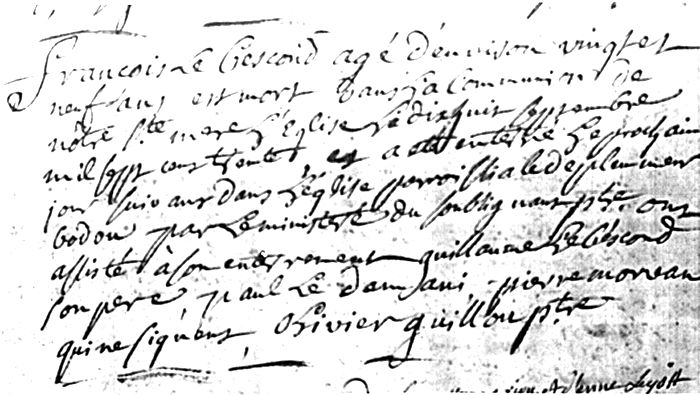 francois Le Cescond agé d'environ vingt et
neuf ans est mort dans La Communion de
nôtre Ste mere L'Eglise Le dixhuit septembre
mil sept cent trente et a esté enterré Le prochain
jour suivant dans L'église parroissialle de pleumeur
bodou par Le ministere du soubsignant ptre ont
assisté à son enterrement guillaume Le Cescond
son pere paul Le pierre moreau
qui ne signent, Olivier guillou ptre